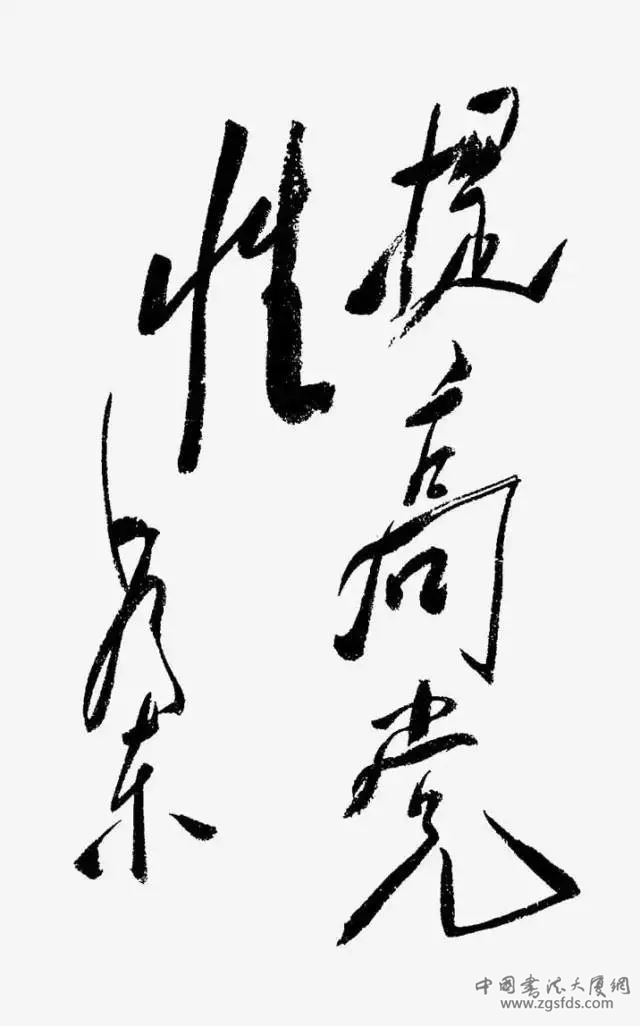 提高党
性
毛泽东
中国书法大厦網
www.zgsfds.com